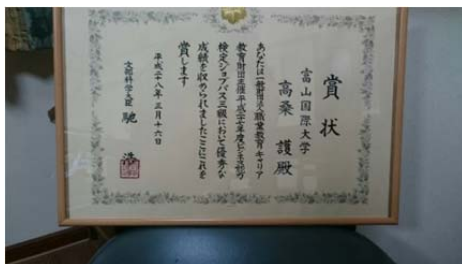 賞状
富山国際大学
高桑 護殿
あなたは一般財団法人職業教育キャリア
教育財団主催平成二十七年度ビジネス能力
検定ジョブパス三級において優秀な
成績を収められましたここにこれを
賞します
平成二十八年三月十六日
文部科学大臣 馳 浩